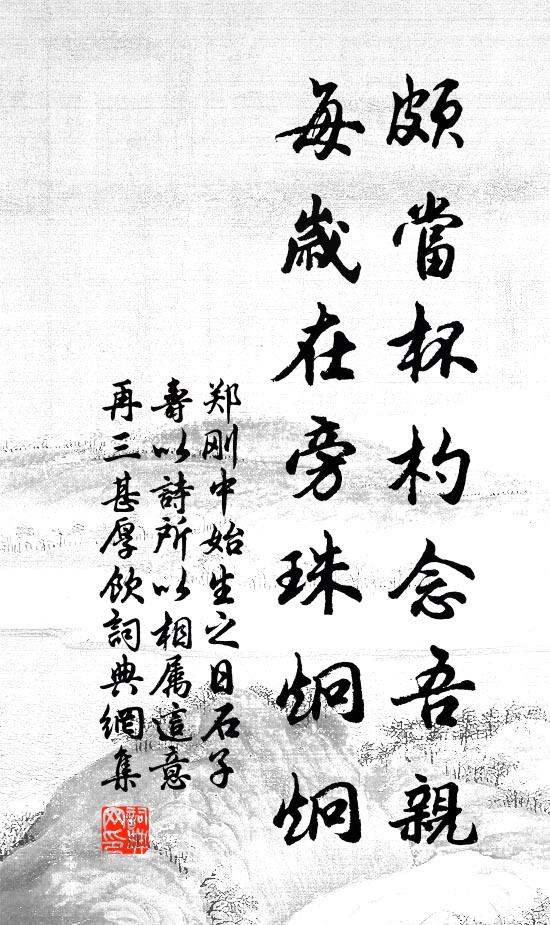 頗當杯杓念吾親
每歲在旁珠炯炯
郑刚中始生之日石子
壽以詩所以相属這意
再三甚厚飲詞典網集